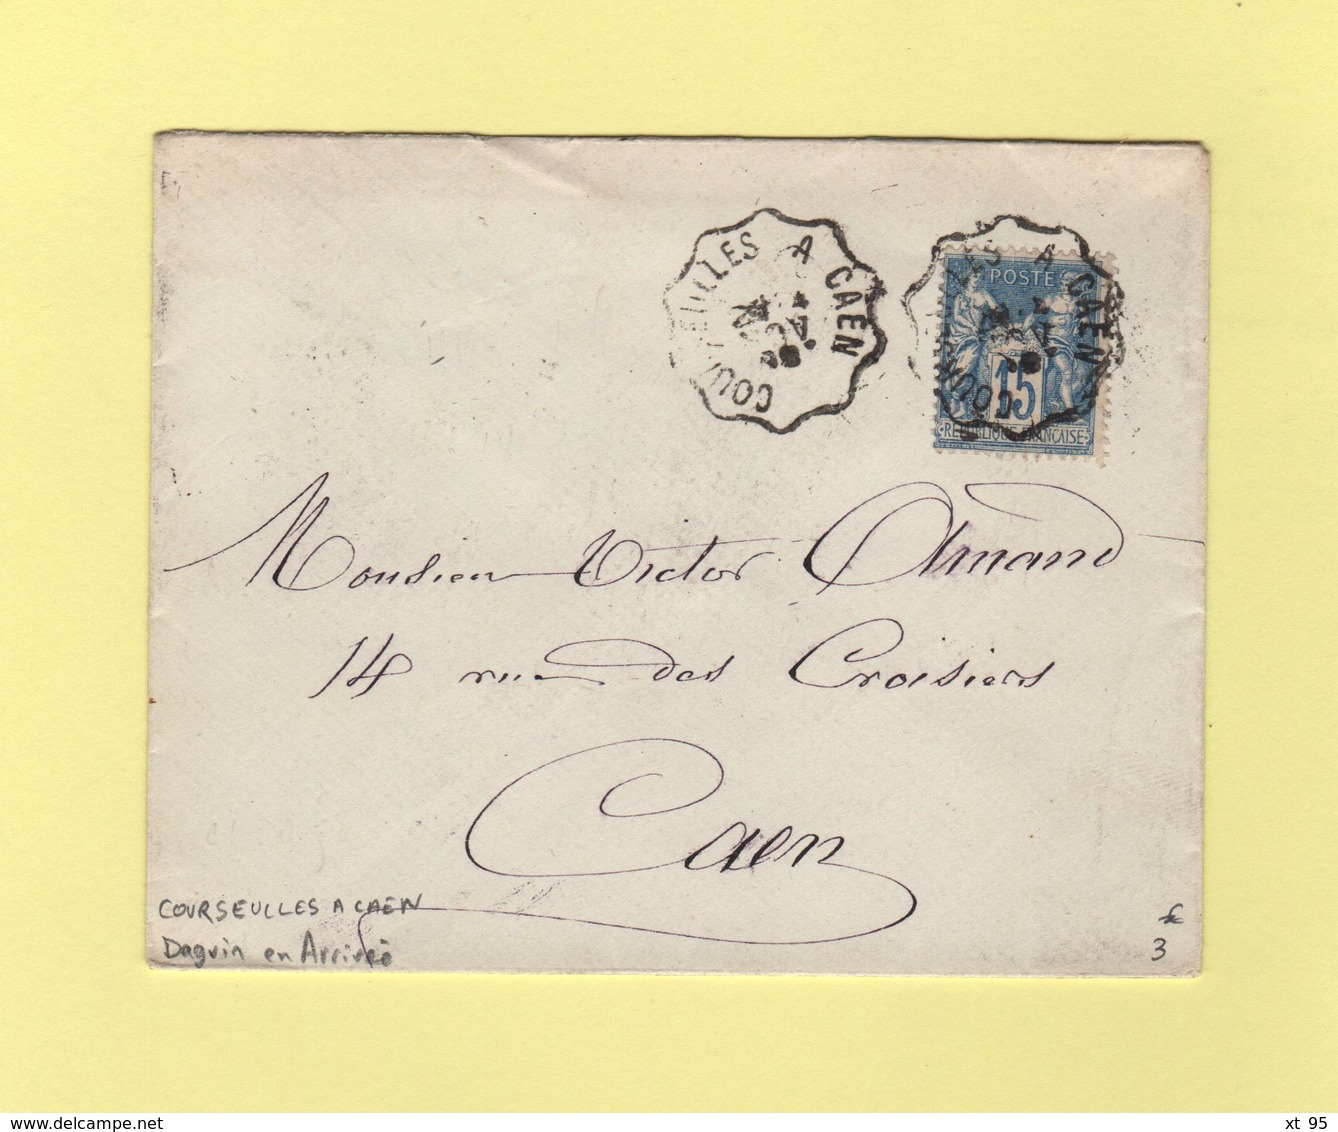 COURSEULLES A CAEN
A CAEN
POSTE
15
REPUBLIQUE FRANÇAISE
Monsieur Victor Amand
14 rue des Croisiers
Caen
COURSEULLES A CAEN
Daguin en Arrivée
3
delcampe.net
xt 95